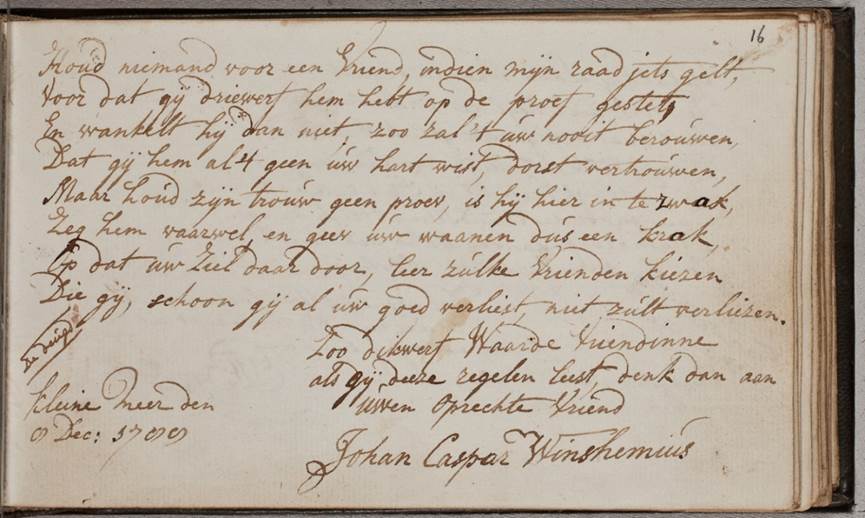 16
Houd niemand voor een Vriend, indien mijn raad jets gelt,
Voor dat gij driewerf hem hebt op de proef gestelt,
En wankelt hij dan niet, zoo zal 't uw nooit berouwen,
Dat gij hem al 't geen uw hart wist, dorst vertrouwen,
Maar houd zijn trouw geen proev, is hij hier in te zwak,
Zeg hem vaarwel, en geev uw waanen dus een krak,
Op dat uw Ziel daar door, leer zulke Vrienden kiezen
Die gij, schoon gij al uw goed verliest, niet zult verliezen.
Zoo dikwerf Waarde Vriendinne
als gij deeze regelen leest, denk dan aan
uwen Oprechte Vriend
Johan Caspar Winshemius
Kleine Meer den
Dec: